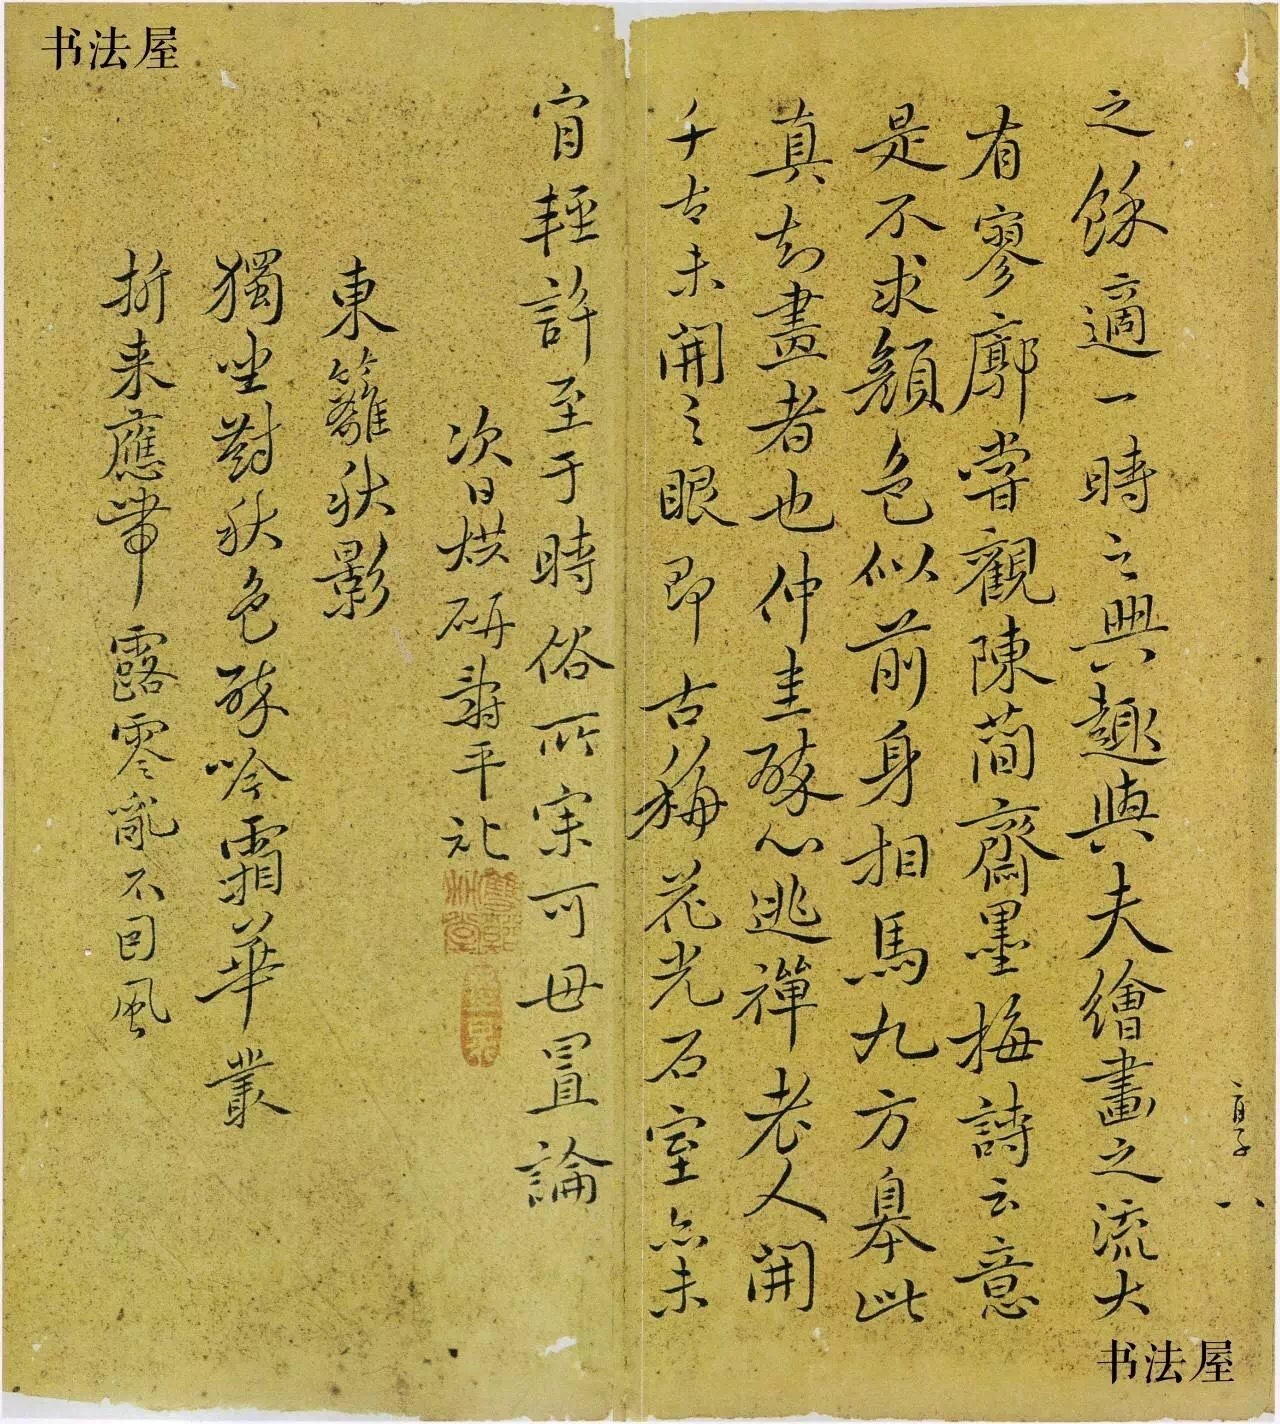 书法屋
之餘適一時之興趣與夫繪畫之流大
有寥廓嘗觀陳蕳齋墨梅詩云意
是不求顏色似前身相馬九方皋此
真知畫者也仲圭酔心逃禪老人開
千古未開之眼即古稱花光石室亦未
肎輕許至于時俗所宗可毋置論
次日烘硏壽平記
東籬秋影
獨坐對秋色酔吟霜華叢
折来應帶露零亂不因風
書
八
书法屋